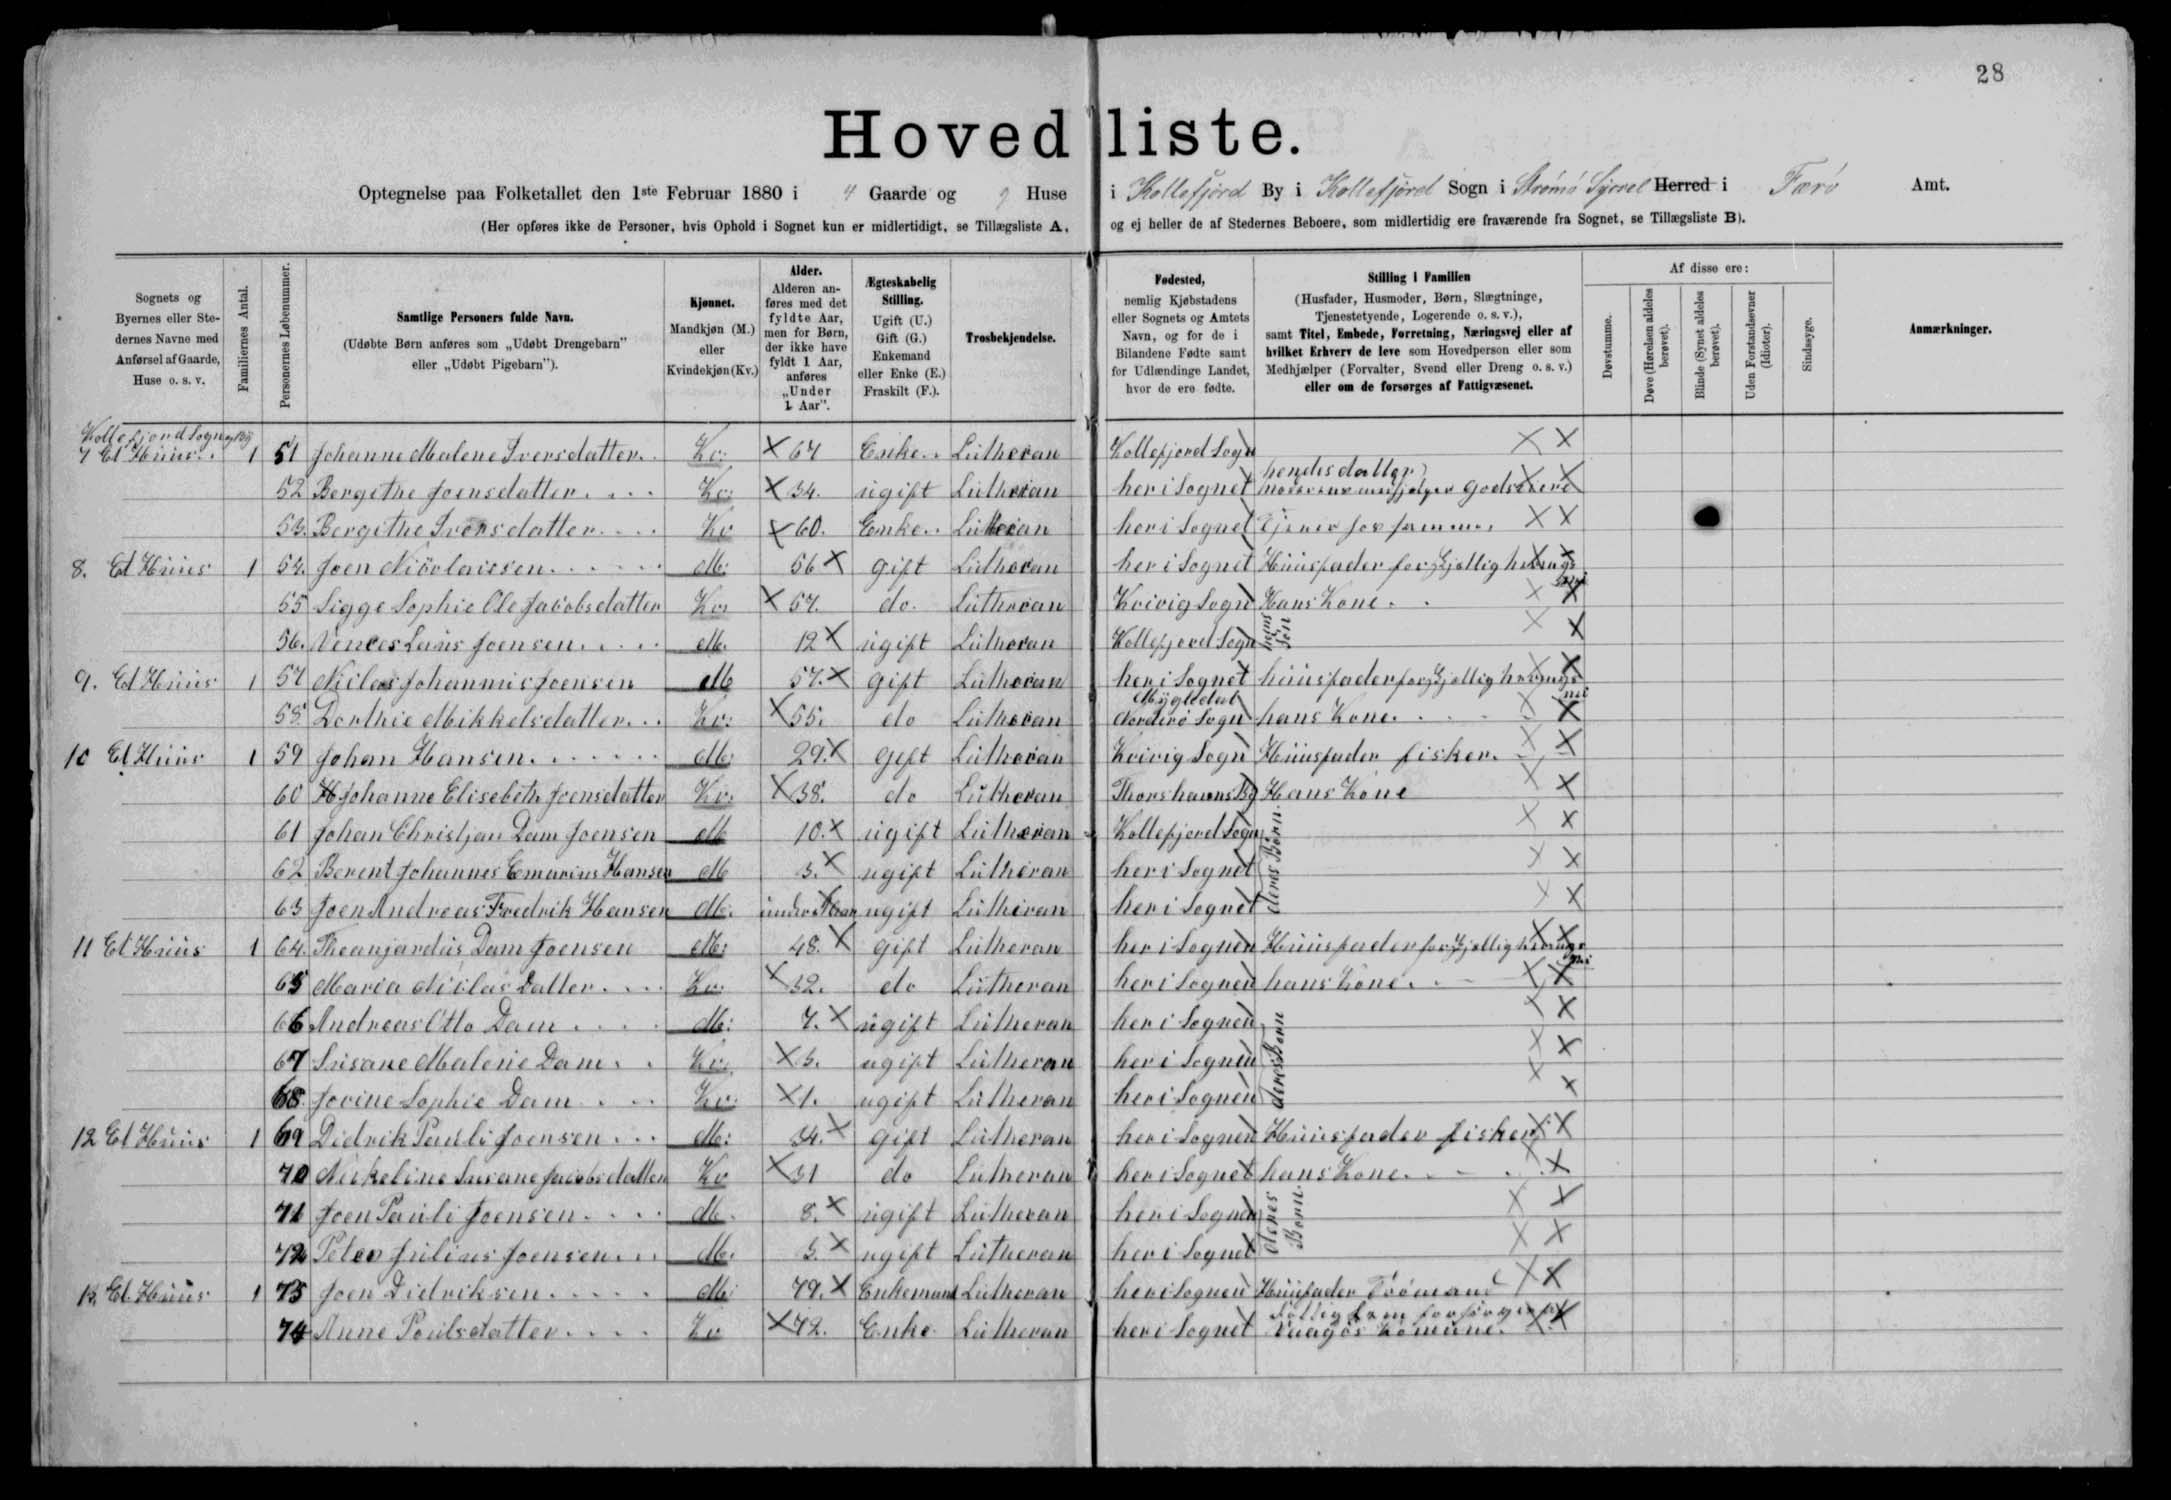 28
Hovedliste.
Optegnelse paa Folketallet den 1ste Februar 1880 i 4 Gaarde og 9 Huse i Kollefjord By i Kollefjord Sogn i Strømø Syssel Herred i Færø Amt.
(Her opføres ikke de Personer, hvis Ophold i Sognet kun er midlertidigt, se Tillægsliste A, og ej heller de af Stedernes Beboere, som midlertidig ere fraværende fra Sognet, se Tillægsliste B).
Sognets og Byernes eller Stedernes Navne med Anførsel af Gaarde, Huse o. s. v.
Familiernes Antal.
Personernes Løbenummer.
Samtlige Personers fulde Navn. (Udøbte Børn anføres som „Udøbt Drengebarn" eller „Udøbt Pigebarn").
Kjønnet. Mandkjøn (M.) eller Kvindekjøn (Kv.)
Alder. Alderen anføres med det fyldte Aar, men for Børn, der ikke have fyldt 1 Aar, anføres „Under 1 Aar".
Ægteskabelig Stilling. Ugift (U.) Gift (G.) Enkemand eller Enke (E.) Fraskilt (F.).
Trosbekjendelse.
Fødested, nemlig Kjøbstadens eller Sognets og Amtets Navn, og for de i Bilandene Fødte samt for Udlændinge Landet, hvor de ere fødte.
Stilling i Familien (Husfader, Husmoder, Børn, Slægtninge, Tjenestetyende, Logerende o. s. v.), samt Titel, Embede, Forretning, Næringsvej eller af hvilket Erhverv de leve som Hovedperson eller som Medhjælper (Forvalter, Svend eller Dreng o. s. v.) eller om de forsørges af Fattigvæsenet.
Af disse ere:
Døvstumme.
Døve (Hørelsen aldeles berøvet).
Blinde (Synet aldeles berøvet).
Uden Forstandsevner (Idioter).
Sindssyge.
Anmærkninger.
Kollefjord Sogn og By
7 Et Huus. 1 51 Johanne Malene Iversdatter. Kv: X 67 Enke. Lutheran Kollefjord Sogn X X
52 Bergithe Joensdatter. Kv: X 34. ugift Lutheran her i Sognet hendes datter X X
53. Bergithe Iversdatter. Kv X 60. Enke. Lutheran her i Sognet Tjener for samme. X X
8. Et Huus 1 54. Joen Niclassen. M: 56 X gift Lutheran her i Sognet Huusfader
55 Sigge Sophie Ole Jacobsdatter Kv: X 57. do. Lutheran Kvivig Sogn Hans Kone. X X
56. Joensen. M. 12 X ugift Lutheran Kollefjord Sogn hans Søn X X
9. Et Huus 1 57 Niclas Johannis Joensen M 57. X gift Lutheran her i Sognet huusfader
58. Dorthie Mikkelsdatter. Kv: X 55. do Lutheran Sogn hans Kone. X X
10 Et Huus 1 59 Johan Hansen. M: 29. X gift Lutheran Kvivig Sogn Huusfader fisker. X X
60 Johanne Elisebeth Joensdatter Kv: X 38. do Lutheran Thorshavns By Hans Kone X X
61 Johan Christjan Dam Joensen M 10. X ugift Lutheran Kollefjord Sogn X X
62 Berent Johannes Emarius Hansen M 3. X ugift Lutheran her i Sognet deres Børn X X
63 Joen Andreas Fredrik Hansen M. under 1 Aar ugift Lutheran her i Sognet X X
11 Et Huus 1 64. Dam Joensen M: 48. X gift Lutheran her i Sognen Huusfader
65 Maria Niclas Datter. Kv: X 32. do Lutheran her i Sognen hans Kone. X X
66 Andreas Otto Dam M: 7. X ugift Lutheran her i Sognen X X
67 Susane Malene Dam. Kv. X 3. ugift Lutheran her i Sognen deres Børn X X
68. Jovine Sophie Dam Kv: X 1. ugift Lutheran her i Sognen X X
12 Et Huus 1 69 Didrik Pauli Joensen M: 34. X gift Lutheran her i Sognen Huusfader fisker X X
70 Mikeline Susane Jacobsdatter Kv X 31 do Lutheran her i Sognet hans Kone. X X
71 Joen Pauli Joensen. M. 8. X ugift Lutheran her i Sognen deres Børn X X
72 Peter Julius Joensen M: 3. X ugift Lutheran her i Sognet X X
13. Et Huus 1 73 Joen Didriksen. M: 79. X Enkemand Lutheran her i Sognen Huusfader X X
74 Anne Poulsdatter. Kv X 72. Enke Lutheran her i Sognet Vaagøs Komune. X X